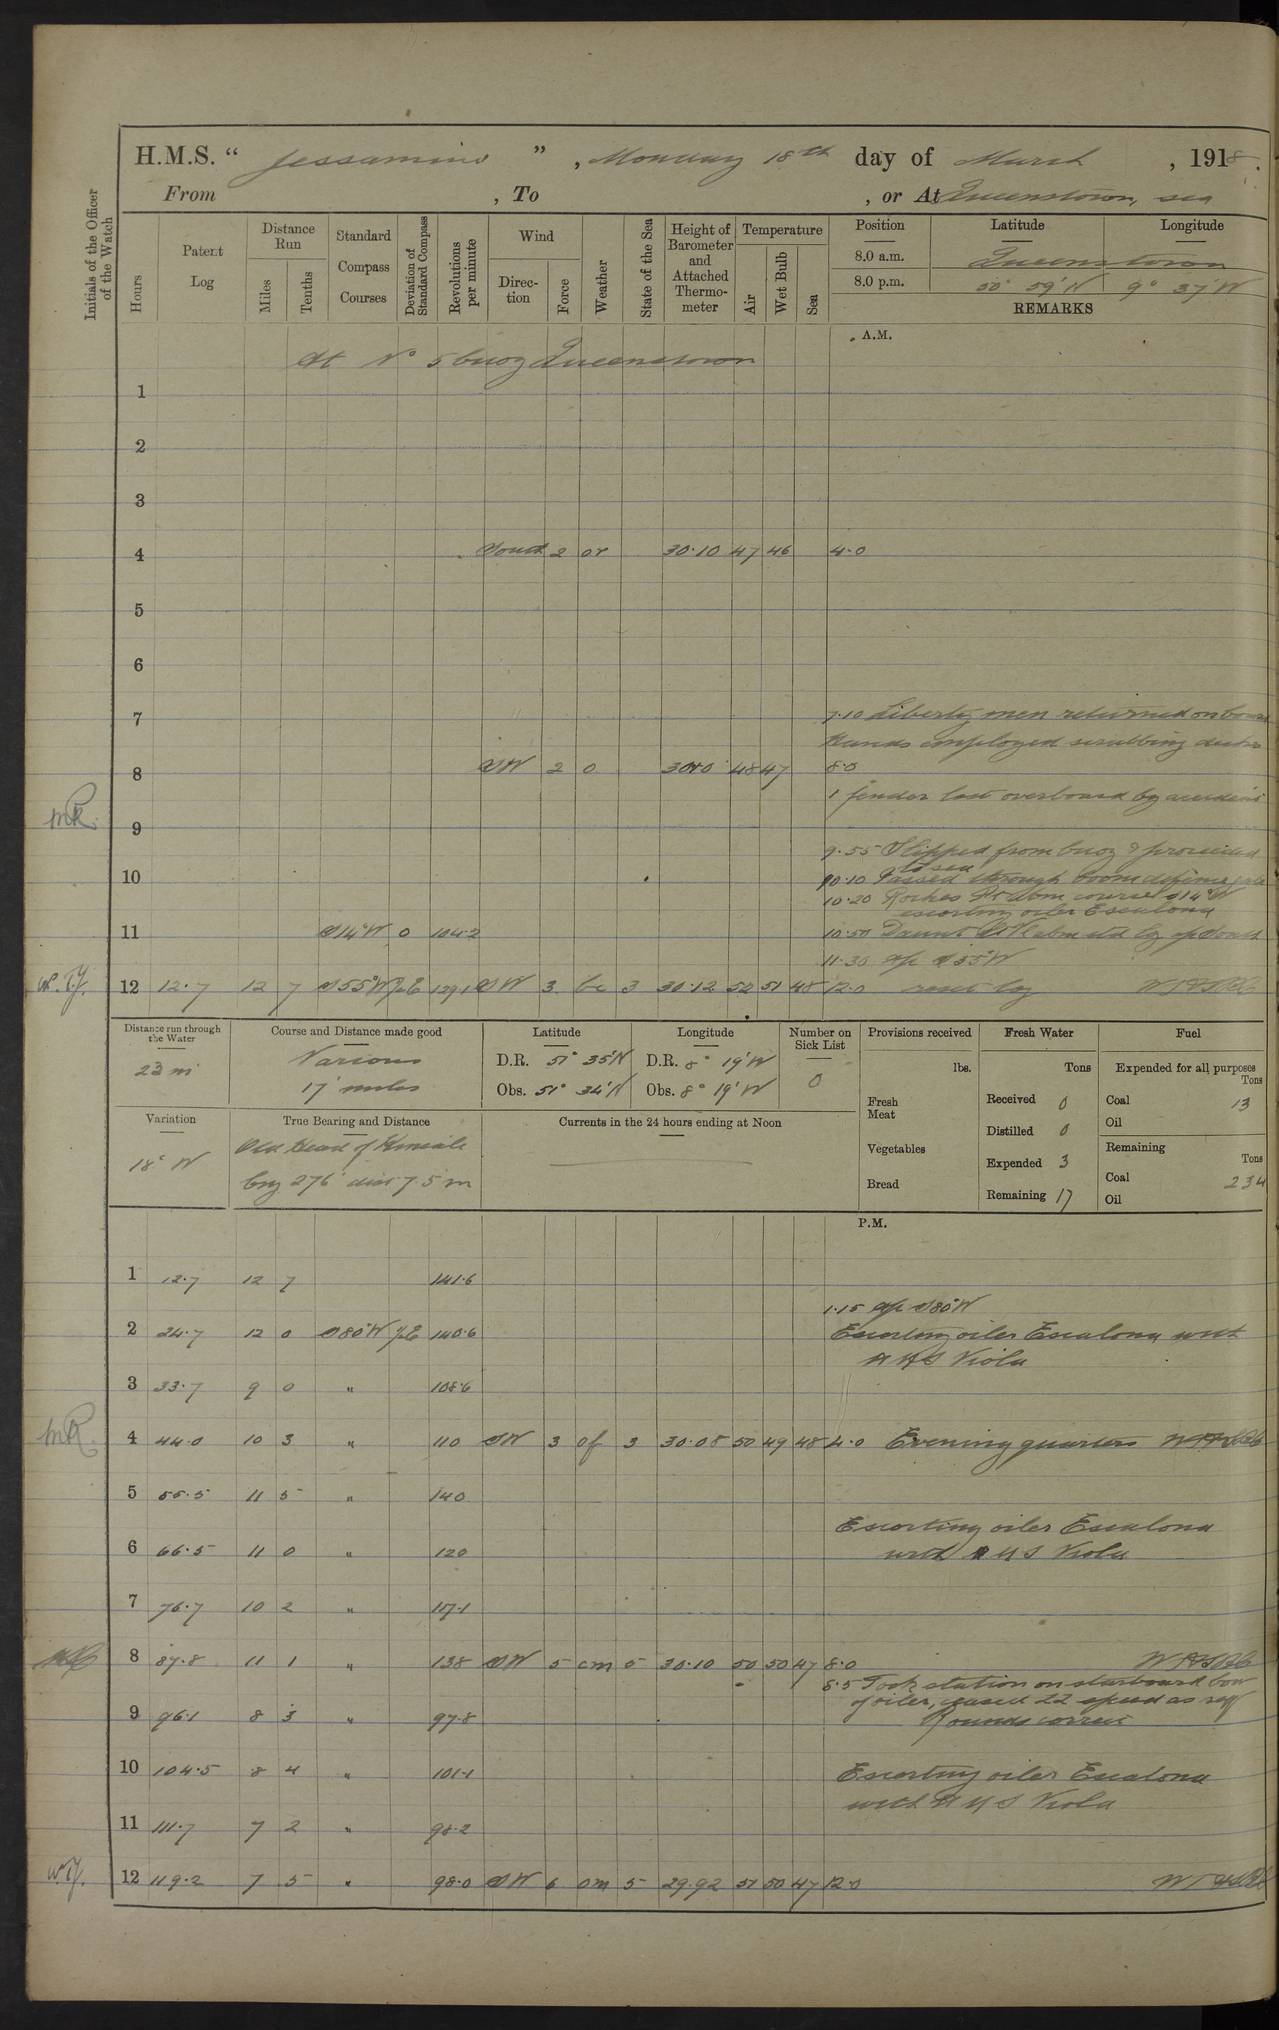 H.M.S. “ Jessamine ”, Monday 18th day of March, 1918.
From , To , or At Queenstown, sea
Initials of the Officer of the Watch
Hours
Patent Log
Distance Run
Miles
Tenths
Standard Compass Courses
Deviation of Standard Compass
Revolutions per minute
Wind
Direction
Force
Weather
State of the Sea
Height of Barometer and Attached Thermometer
Temperature
Air
Wet Bulb
Sea
Position Latitude Longitude
8.0 a.m. Queenstown
8.0 p.m. 50° 59' N 9° 37' W
REMARKS
A.M.
At No 5 buoy Queenstown
1
2
3
4 South 2 or 30.10 47 46 4.0
5
6
7 7.10 Liberty men returned on board
Hands employed scrubbing decks
8 SW 2 0 48 47 8.0
1 fender lost overboard by accident
MR
9
9.55 Slipped from buoy & proceeded to sea
10 10.10 Passed through boom defence gate
10.20 Roches Pt abm course S14°W
escorting oiler Escalona
11 S14°W 0 104.2 10.50 Daunt
11.30 a/c S55°W
W.T.J. 12 12.7 12 7 S55°W 129.1 SW 3 bc 3 30.12 52 51 48 12.0 reset log
Distance run through the Water
23 m
Course and Distance made good
Various
17' miles
Latitude
D.R. 51° 35' N
Obs. 51° 34' N
Longitude
D.R. 8° 19' W
Obs. 8° 19' W
Number on Sick List
0
Provisions received
lbs.
Fresh Meat
Vegetables
Bread
Fresh Water
Tons
Received 0
Distilled 0
Expended 3
Remaining 17
Fuel
Expended for all purposes
Tons
Coal 13
Oil
Remaining
Tons
Coal 234
Oil
Variation
18° W
True Bearing and Distance
Old Head of Kinsale
brg 276° dist 7.5 m
Currents in the 24 hours ending at Noon
P.M.
1 12.7 12 7 141.6
1.15 a/c S80°W
2 24.7 12 0 S80°W 140.6 Escorting oiler Escalona with
HMS Viola
3 33.7 9 0 " 108.6
MR 4 44.0 10 3 " 110 SW 3 of 3 30.08 50 49 48 4.0 Evening quarters
5 55.5 11 5 " 140
Escorting oiler Escalona
6 66.5 11 0 " 120 with HMS Viola
7 76.7 10 2 " 117.1
8 87.8 11 1 " 138 SW 5 cm 5 30.10 50 50 47 8.0
8.5 Took station on starboard bow
of oiler, speed as req
9 96.1 8 3 " 97.8 Rounds correct
10 104.5 8 4 " 101.1 Escorting oiler Escalona
with HMS Viola
11 111.7 7 2 " 98.2
W.T.J. 12 119.2 7 5 " 98.0 SW 6 om 5 29.92 51 50 47 12.0